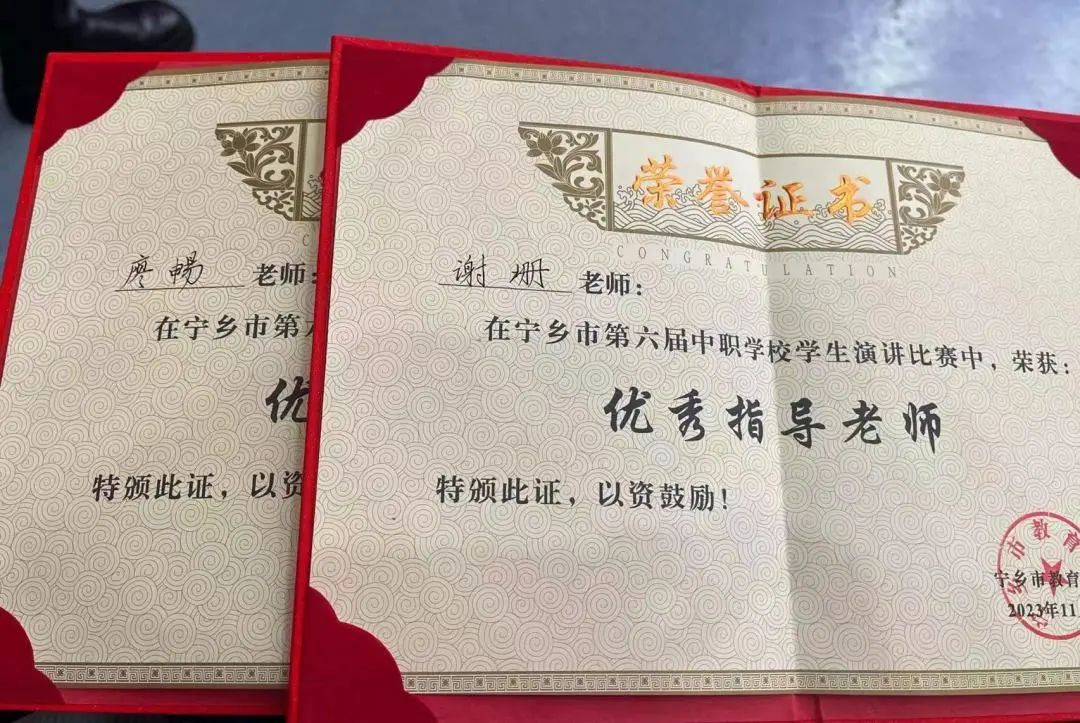 廖暢 老师:
在宁乡市第
优
特颁此证，以资
荣誉证书
CONGRATULATION
谢珊 老师:
在宁乡市第六届中职学校学生演讲比赛中，荣获:
优秀指导老师
特颁此证，以资鼓励!
市教育
宁乡市教育
2023年11